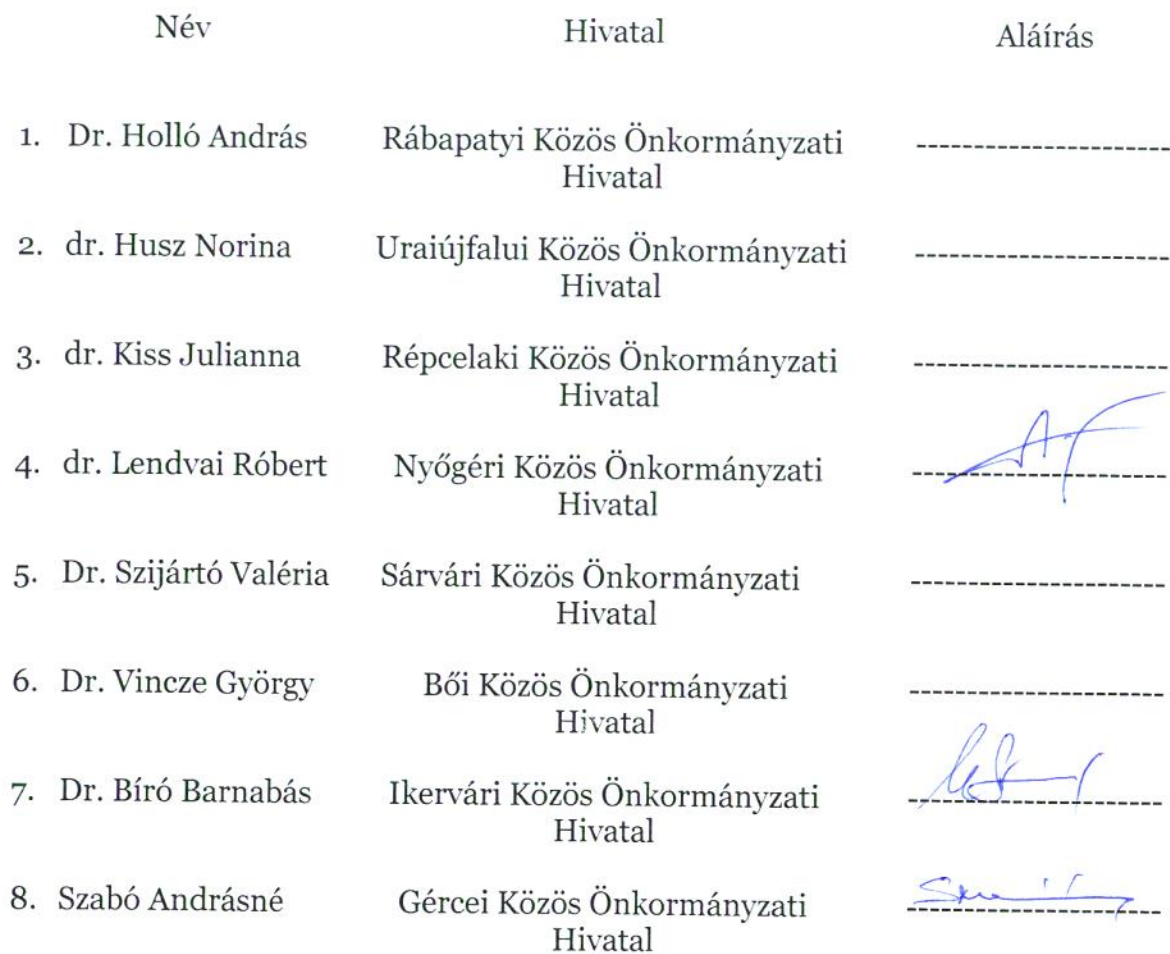 Név Hivatal Aláírás
1. Dr. Holló András Rábapatyi Közös Önkormányzati
Hivatal
2. dr. Husz Norina Uraiújfalui Közös Önkormányzati
Hivatal
3. dr. Kiss Julianna Répcelaki Közös Önkormányzati
Hivatal
4. dr. Lendvai Róbert Nyőgéri Közös Önkormányzati
Hivatal
5. Dr. Szijártó Valéria Sárvári Közös Önkormányzati
Hivatal
6. Dr. Vincze György Bői Közös Önkormányzati
Hivatal
7. Dr. Bíró Barnabás Ikervári Közös Önkormányzati
Hivatal
8. Szabó Andrásné Gércei Közös Önkormányzati
Hivatal